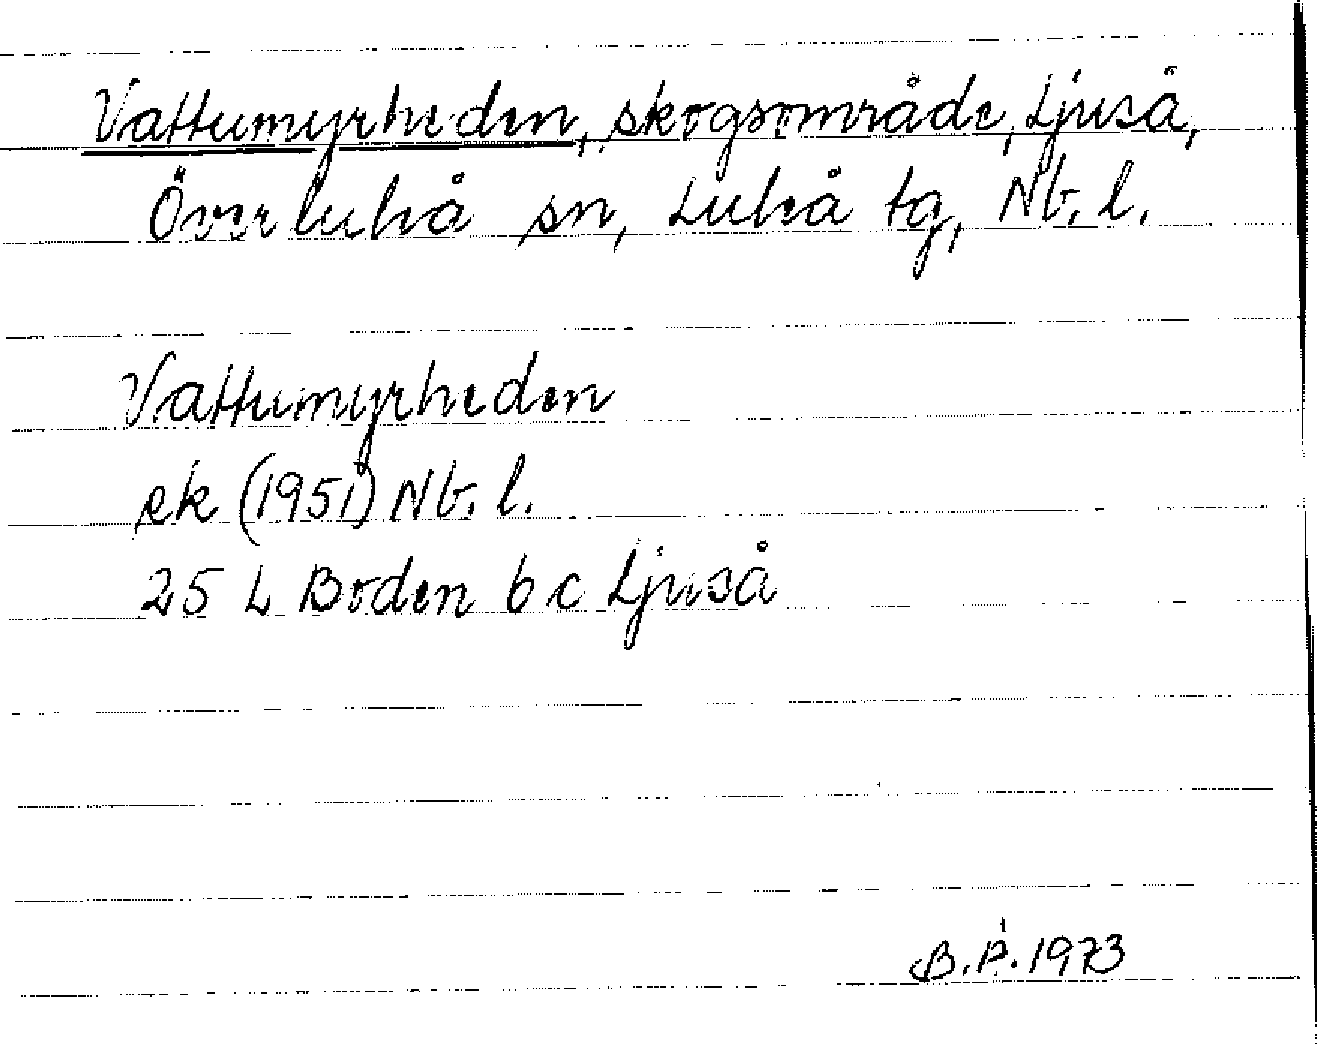 Vattumyrheden, skogsområde, Ljuså,
Överluleå sn, Luleå tg, Nb. l.
Vattumyrheden
ek (1951) Nb. l.
25 L Boden b c Ljuså
B.P. 1973